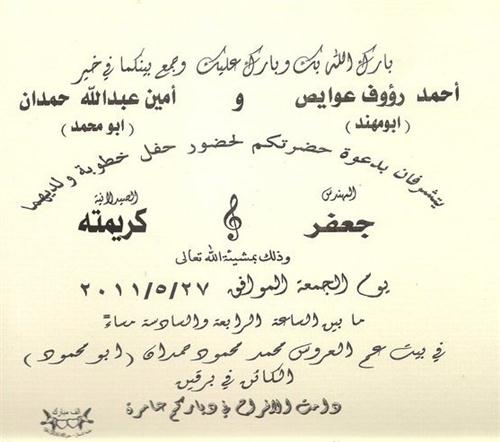 بارك الله بك وبارك عليك وجمع بينكما في خير
أحمد رؤوف عوايص و أمين عبدالله حمدان
(ابومهند) (ابو محمد)
يتشرفان بدعوة حضرتكم لحضور حفل خطوبة ولديهما
المهندس الصيدلانية
جعفر كريمته
وذلك بمشيئة الله تعالى
يوم الجمعة الموافق ٢٠١١/٥/٢٧
ما بين الساعة الرابعة والسادسة مساءً
في بيت عم العروس محمد محمود حمدان (ابو محمود)
الكائن في برقين
دامت الافراح في دياركم عامرة
الف مبارك